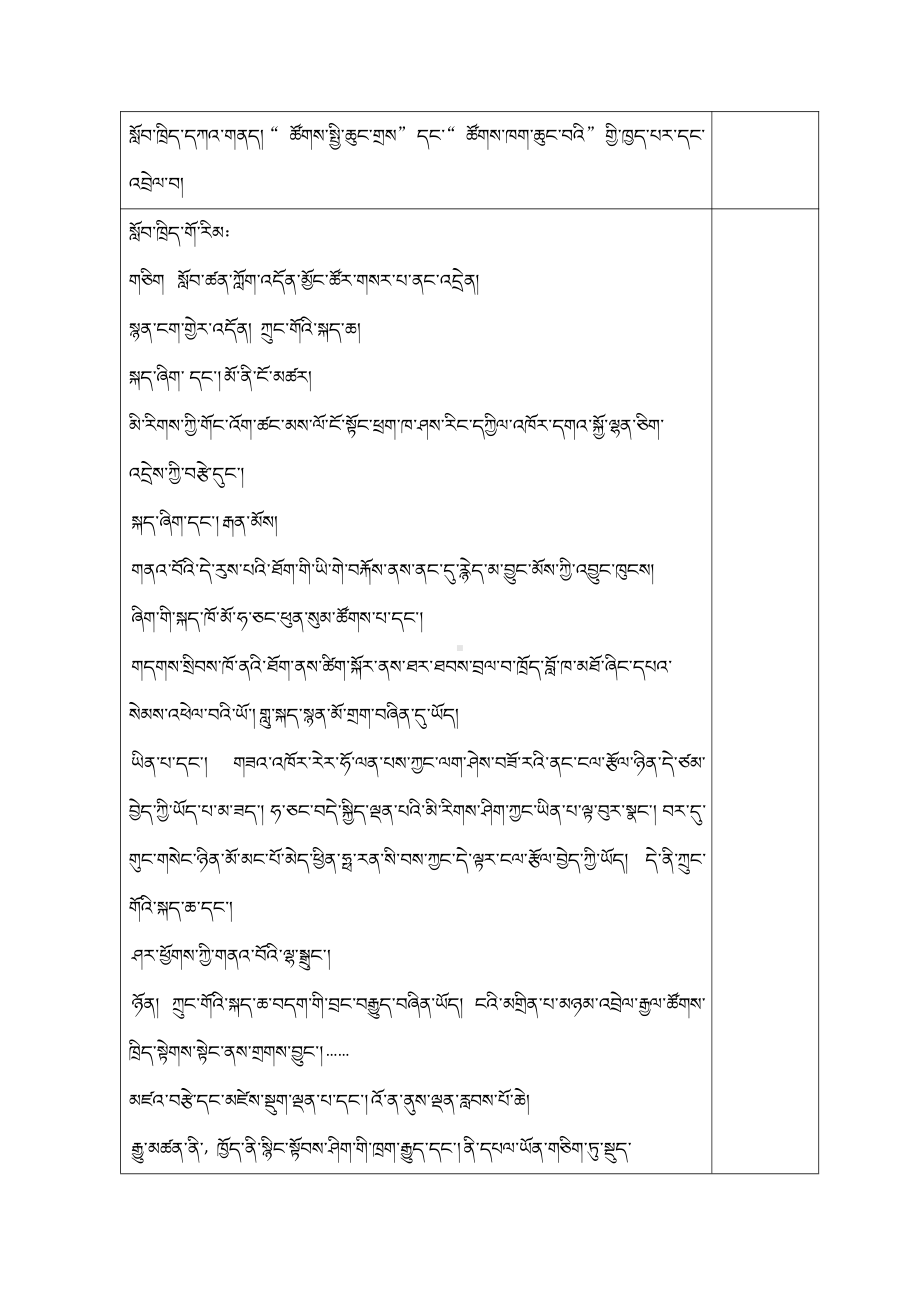 སློབ་ཁྲིད་དཀའ་གནད། “ ཚོགས་སྤྱི་ཆུང་གྲས” དང་“ ཚོགས་ཁག་ཆུང་བའི” གྱི་ཁྱད་པར་དང་
འབྲེལ་བ།
སློབ་ཁྲིད་གོ་རིམ:
གཅིག སློབ་ཚན་ཀློག་འདོན་མྱོང་ཚོར་གསར་པ་ནང་འདྲེན།
སྙན་ངག་གྱེར་འདོན། ཀྲུང་གོའི་སྐད་ཆ།
སྐད་ཞིག་ དང་། མོ་ནི་ངོ་མཚར།
མི་རིགས་ཀྱི་གོང་འོག་ཚང་མས་ལོ་ངོ་སྟོང་ཕྲག་ཁ་ཤས་རིང་དཀྱིལ་འཁོར་དགའ་སྐྱོ་ལྷན་ཅིག་
འདྲེས་ཀྱི་བརྩེ་དུང་།
སྐད་ཞིག་དང་། རྒན་མོས།
གནའ་བོའི་དེ་རུས་པའི་ཐོག་གི་ཡི་གེ་བརྐོས་ནས་ནང་དུ་རྙེད་མ་བྱུང་མོས་ཀྱི་འབྱུང་ཁུངས།
ཞིག་གི་སྐད་ཁོ་མོ་ཧ་ཅང་ཕུན་སུམ་ཚོགས་པ་དང་།
གདགས་སྲིབས་ཁོ་ནའི་ཐོག་ནས་ཚིག་སྐོར་ནས་ཐར་ཐབས་བྲལ་བ་ཁྲོད་བློ་ཁ་མཐོ་ཞིང་དཔའ་
སེམས་འཕེལ་བའི་ཡོ་། གླུ་སྐད་སྙན་མོ་གྲག་བཞིན་དུ་ཡོད།
ཡིན་པ་དང་། གཟའ་འཁོར་རེར་ཧོ་ལན་པས་ཀྱང་ལག་ཤེས་བཟོ་རའི་ནང་ངལ་རྩོལ་ཉིན་དེ་ཙམ་
བྱེད་ཀྱི་ཡོད་པ་མ་ཟད་། ཧ་ཅང་བདེ་སྐྱིད་ལྡན་པའི་མི་རིགས་ཤིག་ཀྱང་ཡིན་པ་ལྟ་བུར་སྣང་། བར་དུ་
གུང་གསེང་ཉིན་མོ་མང་པོ་མེད་ཕྱིན་ཧྥ་རན་སི་བས་ཀྱང་དེ་ལྟར་ངལ་རྩོལ་བྱེད་ཀྱི་ཡོད། དེ་ནི་ཀྲུང་
གོའི་སྐད་ཆ་དང་།
ཤར་ཕྱོགས་ཀྱི་གནའ་བོའི་ལྷ་སྒྲུང་།
ཉོན། ཀྲུང་གོའི་སྐད་ཆ་བདག་གི་བྲང་བརྒྱུད་བཞིན་ཡོད། ངའི་མགྲིན་པ་མཉམ་འབྲེལ་རྒྱལ་ཚོགས་
ཁྲིད་སྟེགས་སྟེང་ནས་གྲགས་བྱུང་། ……
མཛའ་བརྩེ་དང་མཛེས་སྡུག་ལྡན་པ་དང་། འོ་ན་ནུས་ལྡན་རླབས་པོ་ཆེ།
རྒྱུ་མཚན་ནི་, ཁྱོད་ནི་སྙིང་སྟོབས་ཤིག་གི་ཁྲག་རྒྱུད་དང་། ནི་དཔལ་ཡོན་གཅིག་ཏུ་སྡུད་